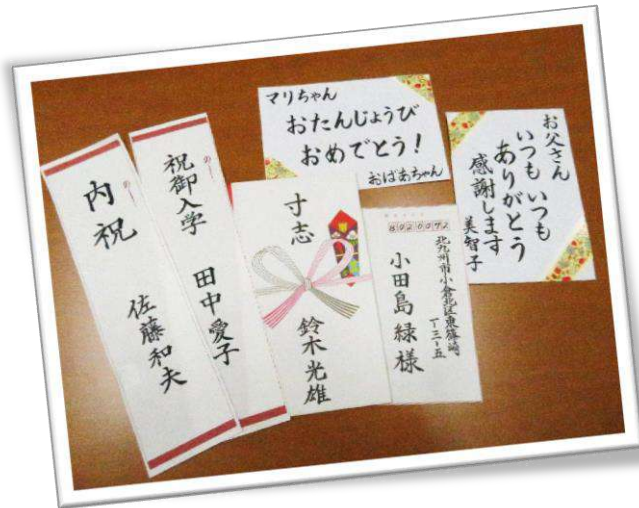 内祝
佐藤和夫
のし
祝御入学
田中愛子
寸志
鈴木光雄
8020072
北九州市小倉北区東篠崎
一-三-五
小田島緑様
マリちゃん
おたんじょうび
おめでとう!
おばあちゃん
お父さん
いつも いつも
ありがとう
感謝します
美智子